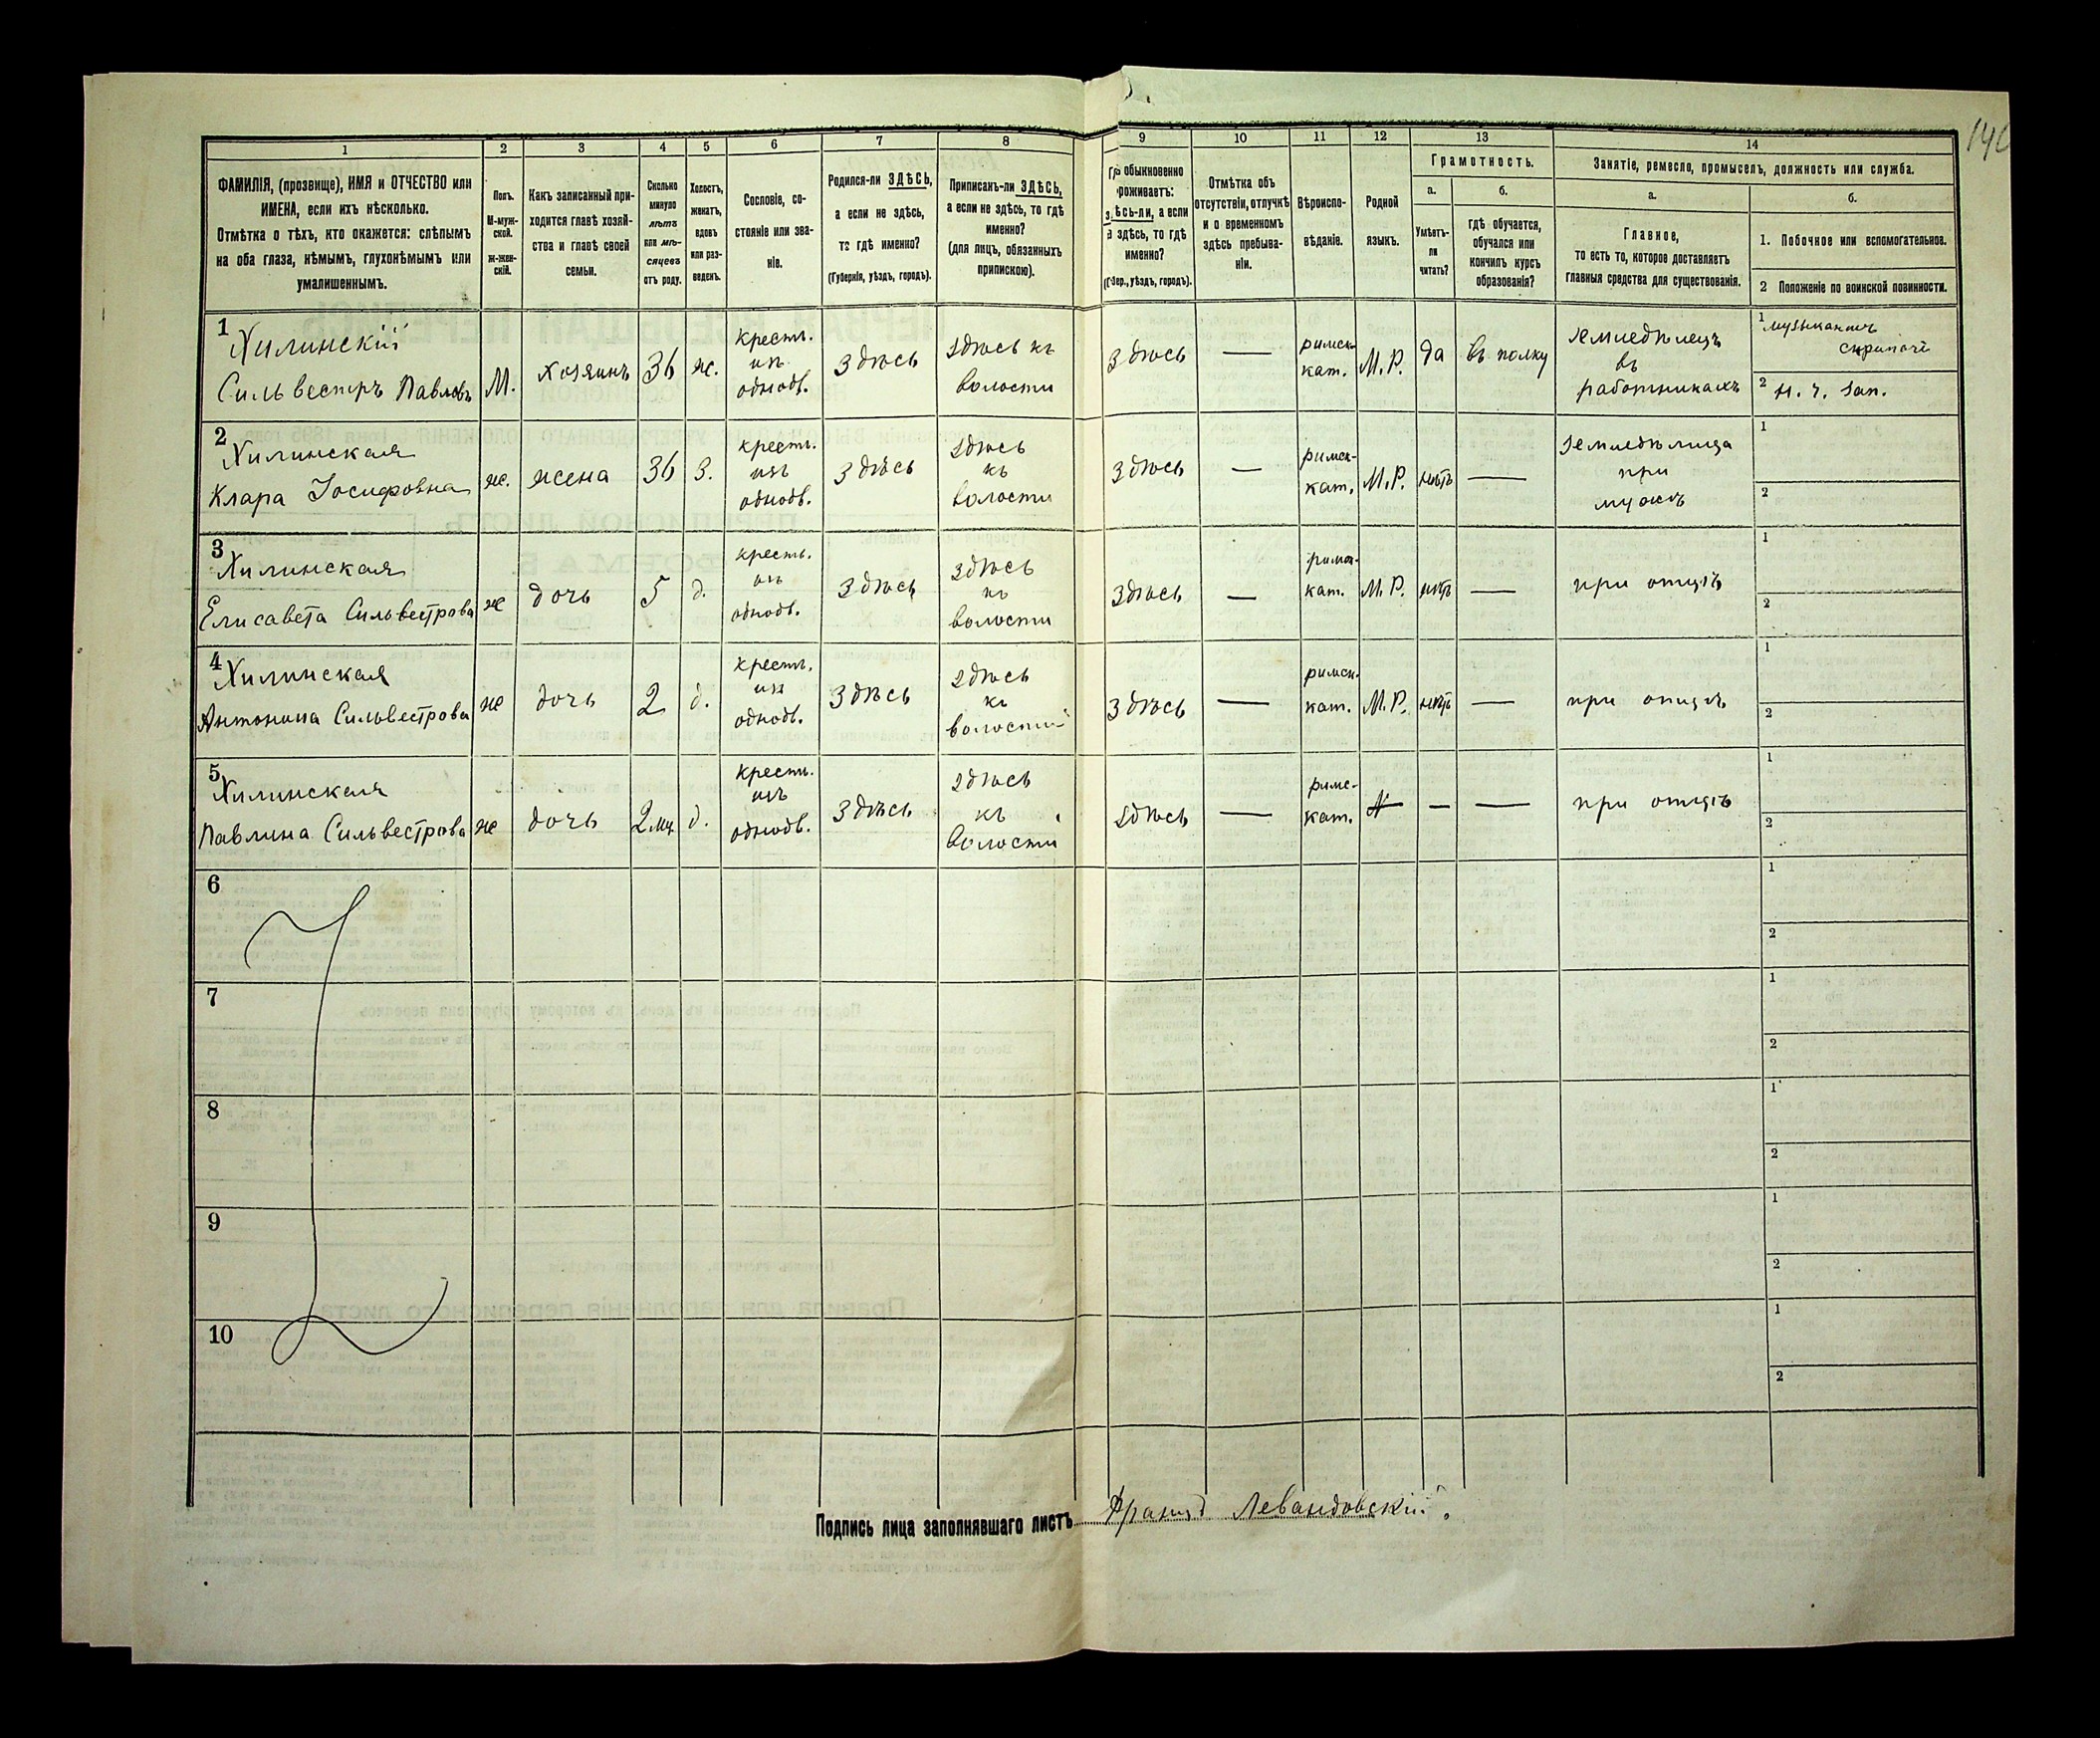 146
1 2 3 4 5 6 7 8 9 10 11 12 13 14
ФАМИЛІЯ, (прозвище), ИМЯ и ОТЧЕСТВО или
ИМЕНА, если ихъ нѣсколько.
Отмѣтка о тѣхъ, кто окажется: слѣпымъ
на оба глаза, нѣмымъ, глухонѣмымъ или
умалишеннымъ.
Полъ.
М-муж-
ской.
ж-жен-
скій.
Какъ записанный при-
ходится главѣ хозяй-
ства и главѣ своей
семьи.
Сколько
минуло
лѣтъ
или мѣ-
сяцевъ
отъ роду.
Холостъ,
женатъ,
вдовъ
или раз-
веденъ.
Сословіе, со-
стояніе или зва-
ніе.
Родился-ли ЗДѢСЬ,
а если не здѣсь,
то гдѣ именно?
(Губернія, уѣздъ, городъ).
Приписанъ-ли ЗДѢСЬ,
а если не здѣсь, то гдѣ
именно?
(для лицъ, обязанныхъ
припискою).
обыкновенно
роживаетъ:
здѣсь-ли, а если
здѣсь, то гдѣ
именно?
уѣздъ, городъ).
Отмѣтка объ
отсутствіи, отлучкѣ
и о временномъ
здѣсь пребыва-
ніи.
Вѣроиспо-
вѣданіе.
Родной
языкъ.
Грамотность.
а.
Умѣетъ-
ли
читать?
б.
гдѣ обучается,
обучался или
кончилъ курсъ
образованія?
Занятіе, ремесло, промыселъ, должность или служба.
а.
Главное,
то есть то, которое доставляетъ
главныя средства для существованія.
б.
1. Побочное или вспомогательное.
2 Положеніе по воинской повинности.
1
Хилинскій
Сильвестръ Павловъ
М.
хозяинъ
36
ж.
крест.
изъ
однодв.
Здѣсь
здѣсь къ
волости
Здѣсь
—
римск.
кат.
М.Р.
да
въ полку
земледѣлецъ
въ
работникахъ
1 музыкантъ
скрипачъ
2 н. ч. зап.
2
Хилинская
Клара Іосифовна
ж.
жена
36
З.
крест.
изъ
однодв.
Здѣсь
здѣсь
къ
волости
Здѣсь
—
римск-
кат.
М.Р.
нѣтъ
—
земледѣлица
при
мужѣ
1
2
3
Хилинская
Елисавета Сильвестрова
ж
дочь
5
д.
крест.
изъ
однодв.
Здѣсь
здѣсь
къ
волости
Здѣсь
—
римск-
кат.
М.Р.
нѣтъ
—
при отцѣ
1
2
4
Хилинская
Антонина Сильвестрова
ж
дочь
2
д.
крест.
изъ
однодв.
Здѣсь
здѣсь
къ
волости
Здѣсь
—
римск-
кат.
М.Р.
нѣтъ
—
при отцѣ
1
2
5
Хилинская
Павлина Сильвестрова
ж
дочь
2 мц
д.
крест.
изъ
однодв.
Здѣсь
здѣсь
къ
волости
здѣсь
—
римс-
кат.
—
—
при отцѣ
1
2
6
1
2
7
1
2
8
1
2
9
1
2
10
1
2
Подпись лица заполнявшаго листъ Францъ Левандовскій.